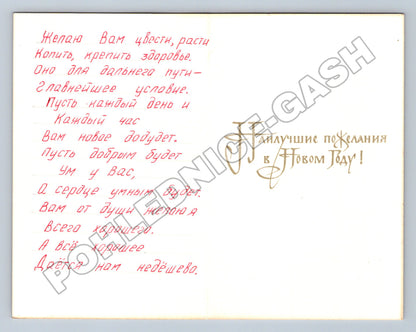 Желаю Вам цвести, расти
Копить, крепить здоровье.
Оно для дальнего пути-
Главнейшее условие.
Пусть каждый день и
Каждый час
Вам новое добудет.
Пусть добрым будет
Ум у Вас,
А сердце умным будет.
Вам от души желаю я
Всего хорошего.
А всё хорошее
Даётся нам недёшево.
Наилучшие пожелания
в Новом Году!
POHLEDNICE-GASH